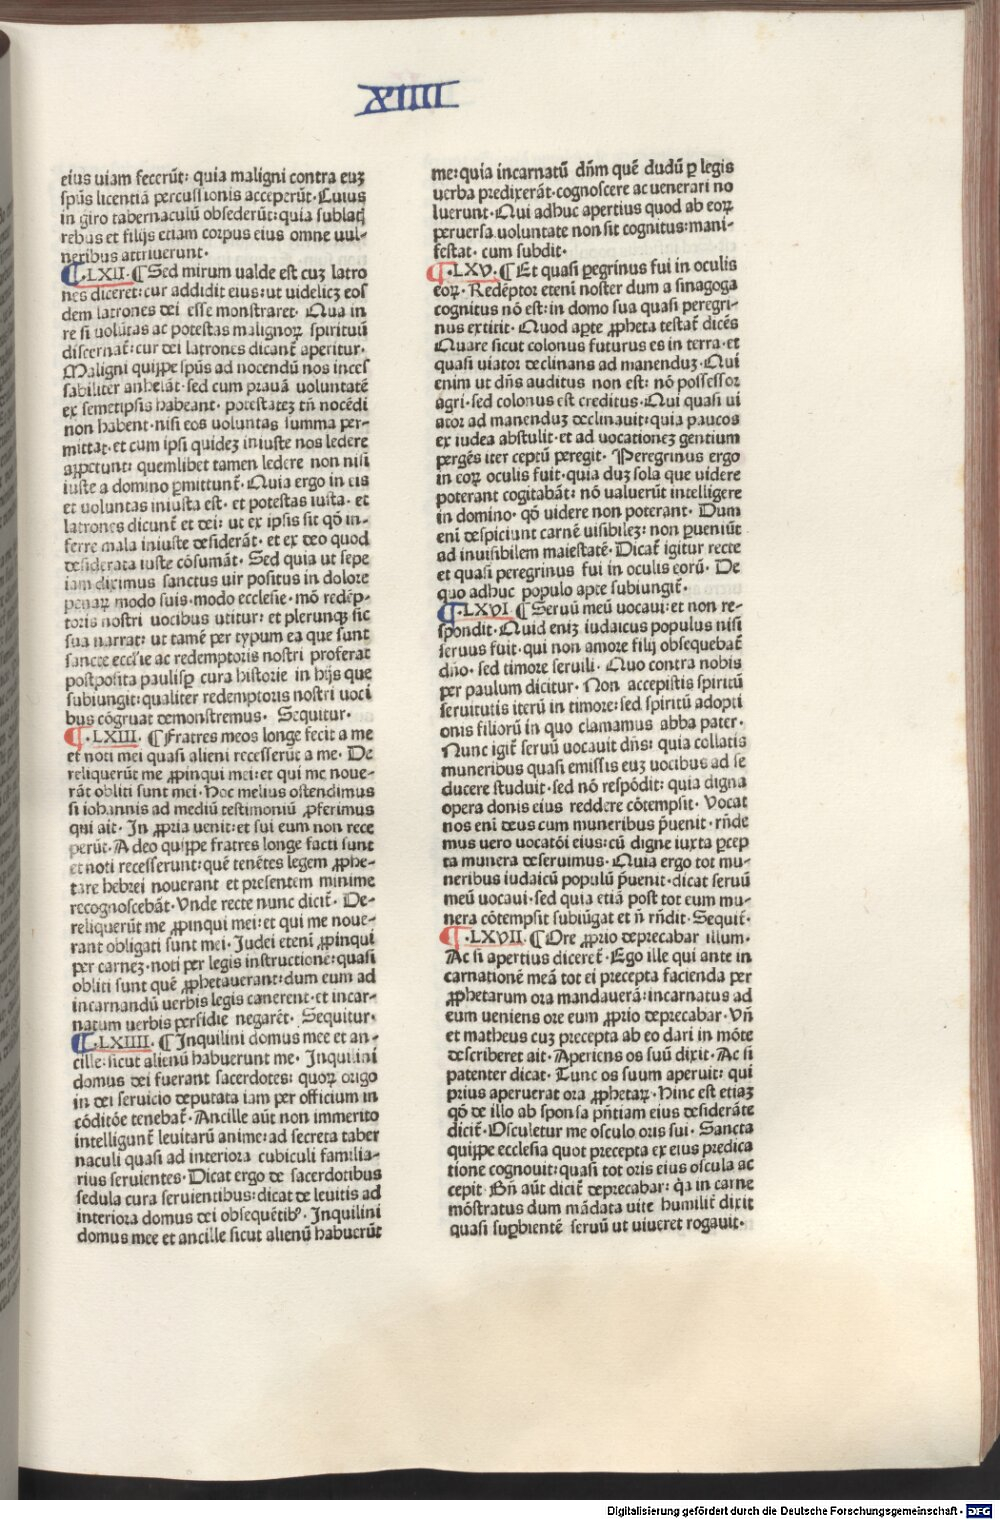 XIIII
eius uiam fecerūt: quia maligni contra euꝫ
spūs licentiā percussionis acceperūt· Cuius
in giro tabernaculū obsederūt: quia sublatꝭ
rebus et filijs etiam corpus eius omne uul-
neribus attriuerunt·
¶·LXII·¶Sed mirum ualde est cuꝫ latro
nes diceret: cur addidit eius: ut uidelicꝫ eos
dem latrones dei esse monstraret· Qua in
re si uolūtas ac potestas malignoꝝ spirituū
discernat̄: cur dei latrones dicant̄ aperitur·
Maligni quiꝓpe spūs ad nocendū nos inces
sabiliter anhelāt· sed cum prauā uoluntatē
ex semetipsis habeant· potestateꝫ tn̄ nocēdi
non habent· nisi eos uoluntas summa per-
mittat· et cum ipsi quideꝫ iniuste nos ledere
aꝓpetunt: quemlibet tamen ledere non nisi
iuste a domino ꝑmittunt̄· Quia ergo in eis
et uoluntas iniusta est· et potestas iusta· et
latrones dicunt̄ et dei: ut ex ipsis sit qō in-
ferre mala iniuste desiderāt· et ex deo quod
desiderata iuste cōsumāt· Sed quia ut sepe
iam diximus sanctus uir positus in dolore
penaꝝ modo suis· modo ecclesie· mō redēp-
toris nostri uocibus utitur: et plerunqꝫ sic
sua narrat: ut tamē per typum ea que sunt
sancte eccl'ie ac redemptoris nostri proferat
postposita paulisꝑ cura historie in hijs que
subiungit: qualiter redemptoris nostri uoci
bus cōgruat demonstremus· Sequitur·
¶·LXIII·¶Fratres meos longe fecit a me
et noti mei quasi alieni recesserūt a me· De
reliquerūt me ꝓpinqui mei: et qui me noue-
rāt obliti sunt mei· Hoc melius ostendimus
si iohannis ad mediū testimoniū ꝓferimus
qui ait· In ꝓpria uenit: et sui eum non rece
perūt· A deo quiꝓpe fratres longe facti sunt
et noti recesserunt: quē tenētes legem ꝓphe-
tare hebrei nouerant et presentem minime
recognoscebāt· Vnde recte nunc dicit̄· De-
reliquerūt me ꝓpinqui mei: et qui me noue-
rant obligati sunt mei· Judei eteni ꝓpinqui
per carneꝫ· noti per legis instructionē: quasi
obliti sunt quē ꝓphetauerant: dum eum ad
incarnandū uerbis legis canerent· et incar-
natum uerbis perfidie negarēt· Sequitur·
¶·LXIIII·¶Inquilini domus mee et an-
cille· sicut alienū habuerunt me· Inquilini
domus dei fuerant sacerdotes: quoꝝ origo
in dei seruicio deputata iam per officium in
cōditōe tenebat̄· Ancille aūt non immerito
intelligunt̄ leuitarū anime: ad secreta taber
naculi quasi ad interiora cubiculi familia-
rius seruientes· Dicat ergo de sacerdotibus
sedula cura seruientibus: dicat de leuitis ad
interiora domus dei obsequētibꝰ· Inquilini
domus mee et ancille sicut alienū habuerūt
me: quia incarnatū dn̄m quē dudū ꝑ legis
uerba predixerāt· cognoscere ac uenerari no
luerunt· Qui adhuc apertius quod ab eoꝝ
peruersa uoluntate non sit cognitus: mani-
festat· cum subdit·
¶·LXV·¶Et quasi ꝑegrinus fui in oculis
eoꝝ· Redēptor eteni noster dum a sinagoga
cognitus nō est: in domo sua quasi peregri-
nus extitit· Quod aꝑte ꝓpheta testat̄ dicēs
Quare sicut colonus futurus es in terra· et
quasi uiator declinans ad manenduꝫ· Qui
enim ut dn̄s auditus non est: nō possessor
agri· sed colonus est creditus· Qui quasi ui
ator ad manenduꝫ declinauit: quia paucos
ex iudea abstulit· et ad uocationeꝫ gentium
pergēs iter ceptū peregit· Peregrinus ergo
in eoꝝ oculis fuit· quia duꝫ sola que uidere
poterant cogitabāt: nō ualuerūt intelligere
in domino· qō uidere non poterant· Dum
eni despiciunt carnē uisibileꝫ: non ꝑueniūt
ad inuisibilem maiestatē· Dicat̄ igitur recte
et quasi peregrinus fui in oculis eorū· De
quo adhuc populo apte subiungit̄·
¶·LXVI·¶Seruū meū uocaui: et non re-
spondit· Quid eniꝫ iudaicus populus nisi
seruus fuit· qui non amore filij obsequebat̄
dn̄o· sed timore seruili· Quo contra nobis
per paulum dicitur· Non accepistis spiritū
seruitutis iterū in timore: sed spiritū adopti
onis filiorū in quo clamamus abba pater·
Nunc igit̄ seruū uocauit dn̄s: quia collatis
muneribus quasi emissis euꝫ uocibus ad se
ducere studuit· sed nō respōdit: quia digna
opera donis eius reddere cōtempsit· Vocat
nos eni deus cum muneribus p̄uenit· rn̄de
mus uero uocatōi eius: cū digne iuxta ꝑcep
ta munera deseruimus· Quia ergo tot mu-
neribus iudaicū populū p̄uenit· dicat seruū
meū uocaui· sed quia etiā post tot eum mu-
nera cōtempsit subiūgat et n̄ rn̄dit· Sequit̄·
¶·LXVII·¶Ore ꝓprio deprecabar illum·
Ac si apertius diceret̄· Ego ille qui ante in
carnationē meā tot ei precepta facienda per
ꝓphetarum ora mandauerā: incarnatus ad
eum ueniens ore eum ꝓprio deprecabar· Vn̄
et matheus cuꝫ precepta ab eo dari in mōte
describeret ait· Aperiens os suū dixit· Ac si
patenter dicat· Tunc os suum aperuit: qui
prius aperuerat ora ꝓphetaꝝ· Hinc est etiaꝫ
qō de illo ab sponsa pn̄tiam eius desiderāte
dicit̄· Osculetur me osculo oris sui· Sancta
quiꝓpe ecclesia quot precepta ex eius predica
tione cognouit: quasi tot oris eius oscula ac
cepit· Bn̄ aūt dicit̄ deprecabar: q̄a in carne
mōstratus dum mādata uite humilit̄ dixit
quasi suꝑbientē seruū ut uiueret rogauit·
Digitalisierung gefördert durch die Deutsche Forschungsgemeinschaft - DFG